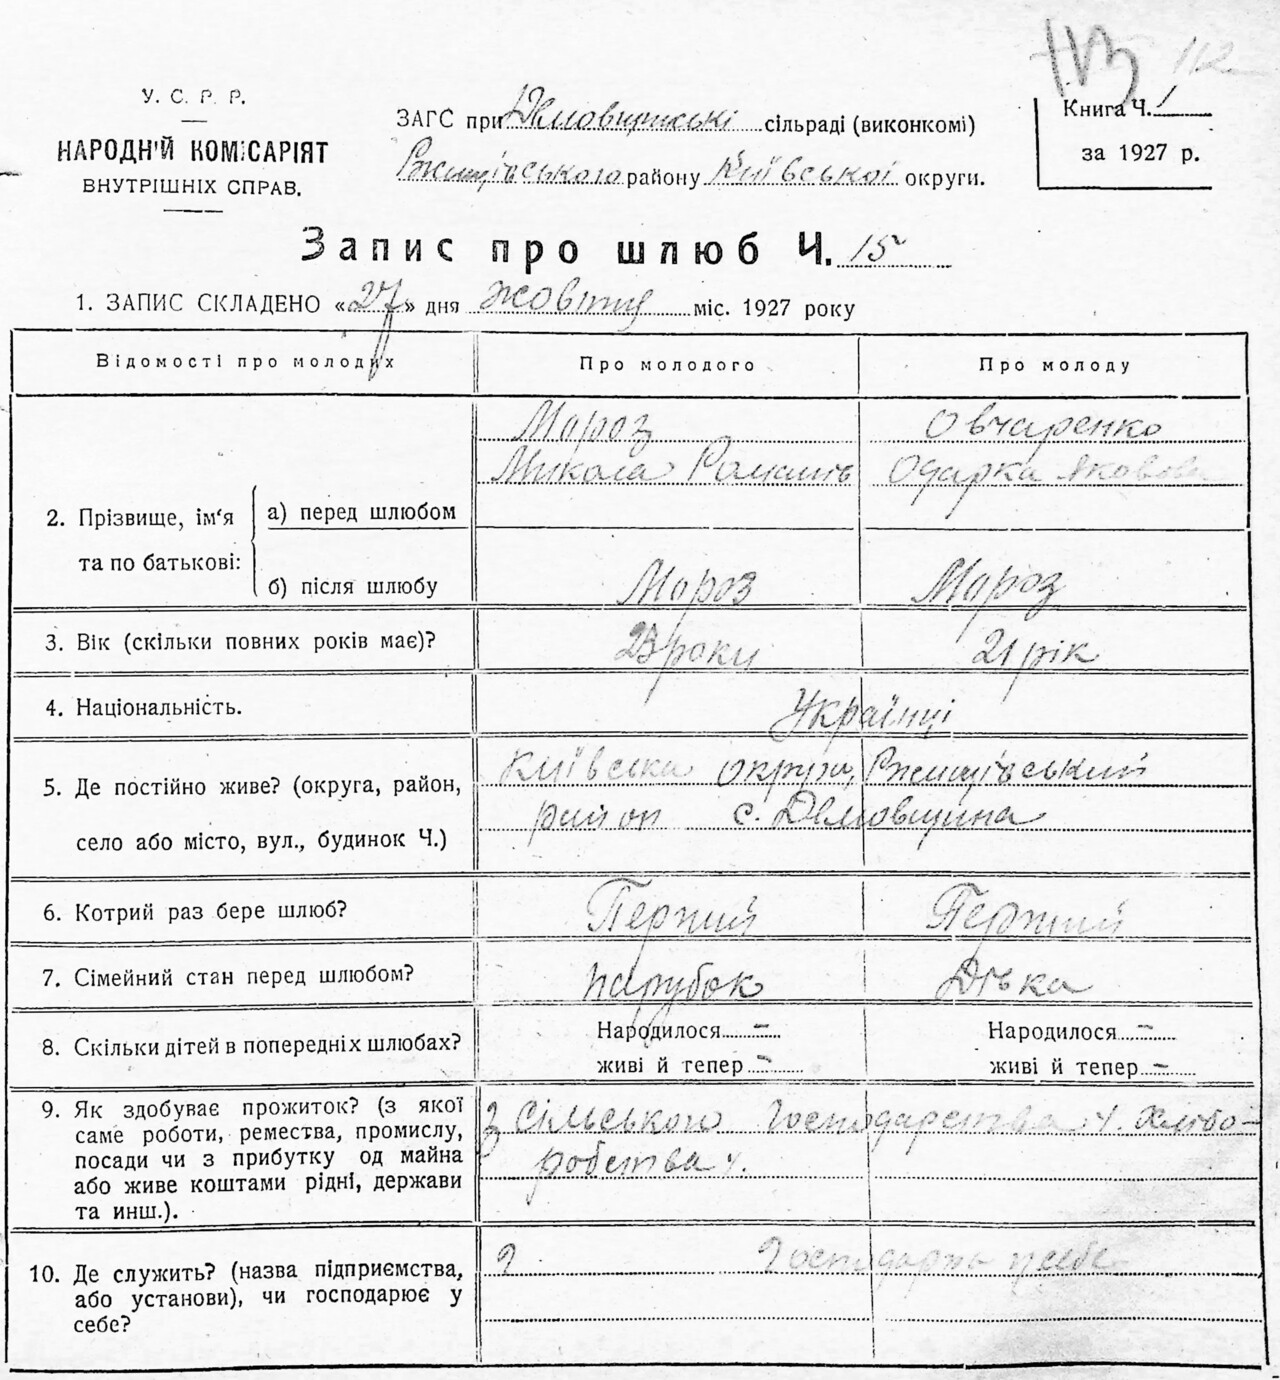 113 112
У. С. Р. Р.
НАРОДНІЙ КОМІСАРІЯТ
ВНУТРІШНІХ СПРАВ.
ЗАГС при Демовщинські сільраді (виконкомі)
Ржищівського району Київської округи.
Книга Ч. 1
за 1927 р.
Запис про шлюб Ч. 15
1. ЗАПИС СКЛАДЕНО «27» дня жовтня міс. 1927 року
Відомості про молодих Про молодого Про молоду
Мороз Овчаренко
Микола Романів Одарка Яковова
2. Прізвище, ім'я та по батькові:
а) перед шлюбом
б) після шлюбу Мороз Мороз
3. Вік (скільки повних років має)? 23 роки 21 рік
4. Національність. Українці
5. Де постійно живе? (округа, район, Київська округа, Ржищівський
село або місто, вул., будинок Ч.) район с. Демовщина
6. Котрий раз бере шлюб? Перший Перший
7. Сімейний стан перед шлюбом? парубок Дівка
8. Скільки дітей в попередніх шлюбах? Народилося – Народилося –
живі й тепер – живі й тепер –
9. Як здобуває прожиток? (з якої З Сільського Господарства ч. Хлібо-
саме роботи, ремества, промислу, робства ч.
посади чи з прибутку од майна
або живе коштами рідні, держави
та инш.).
10. Де служить? (назва підприємства, Господарь у себе
або установи), чи господарює у
себе?